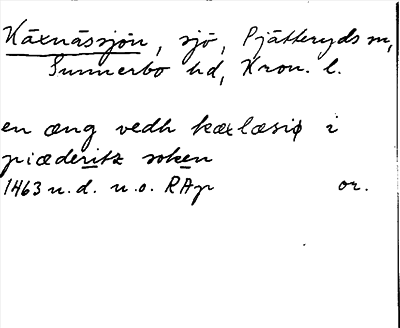 Käxnässjön, sjö, Pjätteryds sn,
Sunnerbo hd, Kron. l.
en æng vedh kæxlæsiø i
piæderitz soken
1463 u. d. u. o. RAp or.